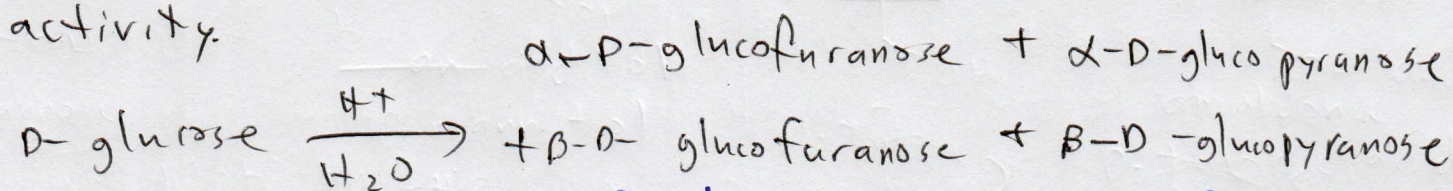 activity.
α-D-glucofuranose + α-D-gluco pyranose
D- glucose H+ → H2O +β-D- glucofuranose + β-D -glucopyranose